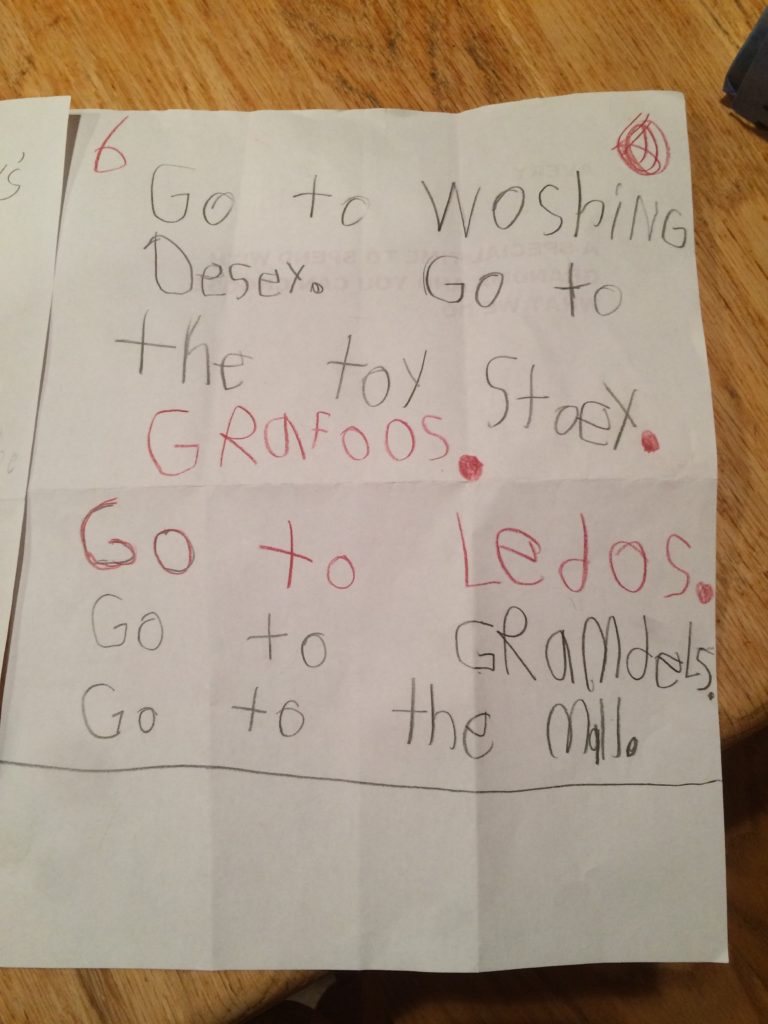 's
6
Go to WOShiNG
Desey. Go to
the toy Stoey.
GRafoos.
Go to Ledos.
Go to GRaMdels.
Go to the Mall.